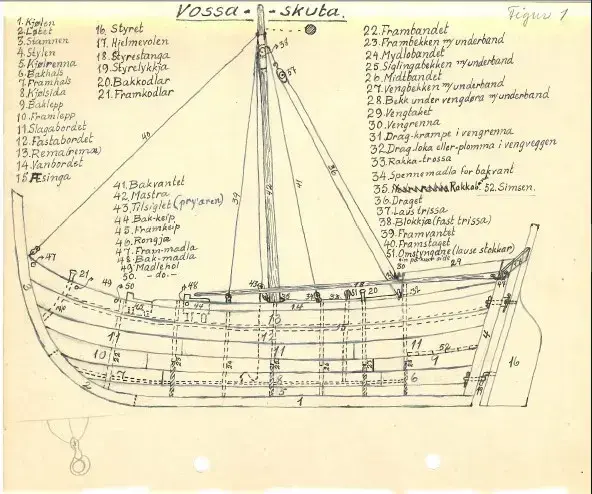 Vossa - skuta.
Figur 1
1. Kjølen
2. Lotet
3. Stamnen
4. Stylen
5. Kjølrenna
6. Bakhals
7. Framhals
8. Kjølsida
9. Baklepp
10. Framlepp
11. Slagabordet
12. Fastabordet
13. Rema (remæ)
14. Vanbordet
15. Æsinga
16. Styret
17. Hjelmevolen
18. Styrestanga
19. Styrelykkja
20. Bakkodlar
21. Framkodlar
22. Frambandet
23. Frambekken m/underband
24. Mydlobandet
25. Siglingabekken m/underband
26. Midtbandet
27. Vengbekken m/underband
28. Bekk under vengdøra m/underband
29. Vengtaket
30. Vengrenna
31. Drag-krampe i vengrenna
32. Drag-loka eller-plomma i vengveggen
33. Rakka-trossa
34. Spennemadla for bakvant
35. Rakkab 52. Simsen.
36. Draget
37. Laus trissa
38. Blokkjæ (fast trissa)
39. Framvantet
40. Framstaget
51. Omstyngdne (lause stokkar)
41. Bakvantet
42. Mastra
43. Tilsiglet (pry'aren)
44. Bak-keip
45. Framkeip
46. Rongjæ
47. Fram-madla
48. Bak-madla
49. Madlehol
50. - do. -